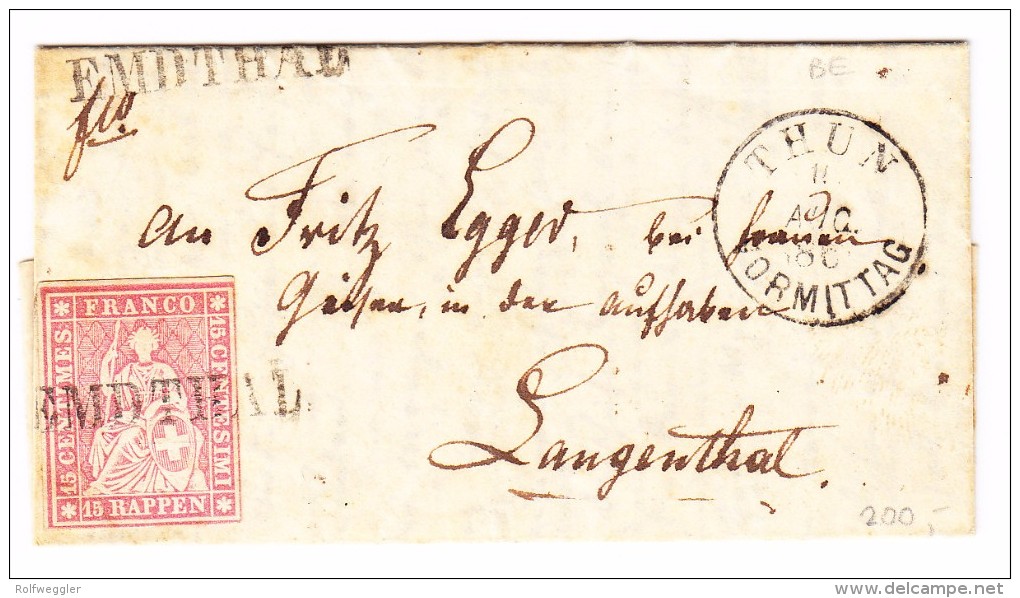 EMDTHAL
BE
fco.
THUN
11
AUG.
VORMITTAG
An Fritz Egger, bei
in der
Langenthal.
FRANCO
15 CENTIMES
15 CENTESIMI
15 RAPPEN
EMDTHAL
200,-
Rolfweggler
www.delcampe.net